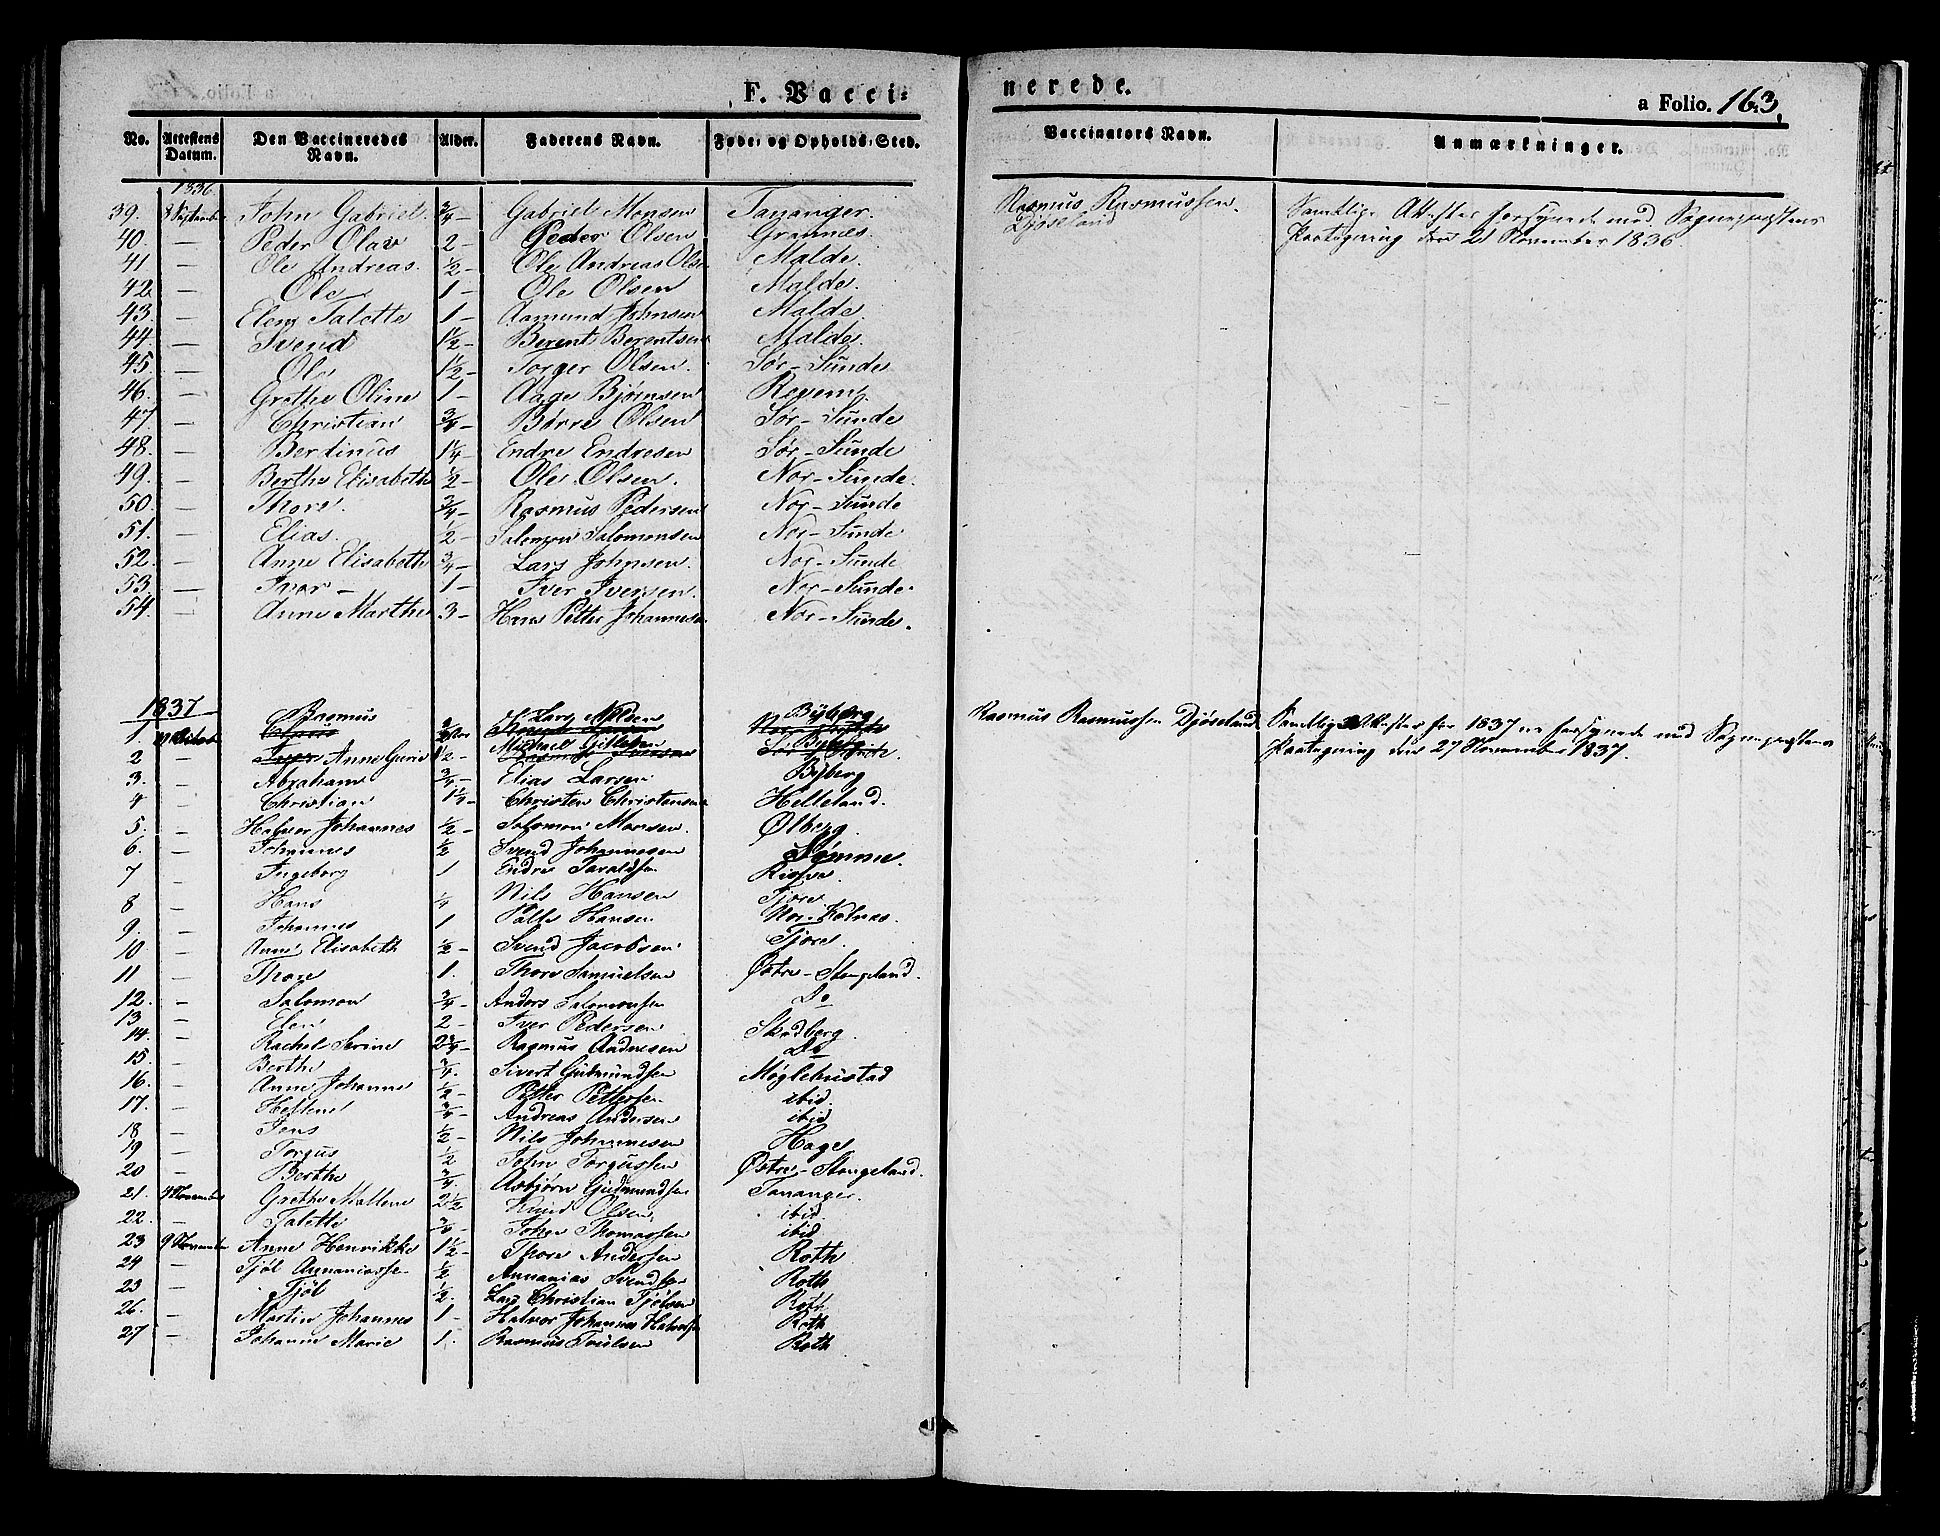 F. Vacci-
nerede.
a Folio. 163.
No. Attestens Datum. Den Vaccineredes Navn. Alder. Faderens Navn. Føde- og Opholds-Sted. Vaccinators Navn. Anmærkninger.
1836
39. 8 September John Gabriel. 3/4 – Gabriel Monsen Tananger. Rasmus Rasmussen Djøseland Samtlige Attester forsynede med Sognepræstens
Paategning den 21 November 1836.
40. — Peder Olav 2 – Peder Olsen Grannes.
41 — Ole Andreas. 1/2 – Ole Andreas Olsen Malde.
42. — Ole 1 – Ole Olsen Malde.
43. — Elen Talette 1 – Aamund Johnsen Malde.
44. — Svend 1 1/2 – Berent Berentsen Malde.
45. — Ole 1 1/2 – Torger Olsen. Sør-Sunde
46. — Grethe Oline 1 – Aage Bjørnsen Regeml.
47. — Christian 3/4 – Børre Olsen Sør-Sunde
48. — Berdinus 1 1/4 – Endre Endresen Sør-Sunde
49. — Berthe Elisabeth 1/2 – Ole Olsen. Nor-Sunde.
50. — Thore. 3/4 – Rasmus Pedersen Nor-Sunde
51. — Elias. 1/2 – Salomon Salomonsen Nor-Sunde
52. — Anne Elisabeth 3/4 – Lars Johnsen. Nor-Sunde
53 — Ivar – 1 – Iver Iversen. Nor-Sunde.
54. — Anne Marthe 3 – Hans Petter Johannesen Nor-Sunde.
1837
1. Rasmus Lars Nilsen Byberg Rasmus Rasmussen Djøseland Samtlige Attester for 1837 ere forsynede med Sognepræstens
Paategning den 27 November 1837.
2 – Anne Gurie 1/2 – Michael Gitlesen Byberg
3. – Abraham 3/4 – Elias Larsen Byberg
4 – Christian 1 1/4 – Christen Christensen Helleland.
5. – Halvor Johannes 1/2 – Salomon Monsen. Ølberg.
6. – Johannes 1/2 Svend Johannesen Sømme.
7 – Ingeborg 1 Endre Taraldsen Risse
8 – Hans 1/4 Nils Hansen Tjore
9. – Johannes 1 Palle Hansen Nor-Kolnes.
10 – Anne Elisabeth 1/2 – Svend Jacobsen. Tjore.
11 – Thore 1. Thore Samuelsen Østre-Stangeland.
12. – Salomon 3/4 – Anders Salomonsen Do
13 – Elen 2 – Iver Pedersen Skadberg
14. – Rachel Serine 2 3/4 – Rasmus Andresen Do
15. – Berthe 3/4. Sivert Gudmundsen Møglebustad
16. – Anne Johanne 1/2 – Petter Pettersen ibid.
17. – Hellene 3/4 – Andreas Andersen ibid
18 – Jens 1/2 – Nils Johannesen Haga
19 – Torgus 1/2 John Torgussen Østre-Stangeland.
20 – Berthe 3/4. Asbjørn Gudmundsen Tananger.
21. 4 November Grethe Mallene 2 1/2 Knud Olsen ibid
22. – Talette 3/4 – John Thomassen ibid
23 9 November Anne Henrikke 1 1/2 – Thore Andersen Roth
24 – Tjøl Annaniassen 1/2 Annanias Svendsen Roth
23 – Tjøl 1/2. Lars Christian Tjølsen Roth
26. – Martin Johannes 1 – Halvor Johannes Halvorsen Roth
27 – Johanne Marie 1. Rasmus Truelsen Roth